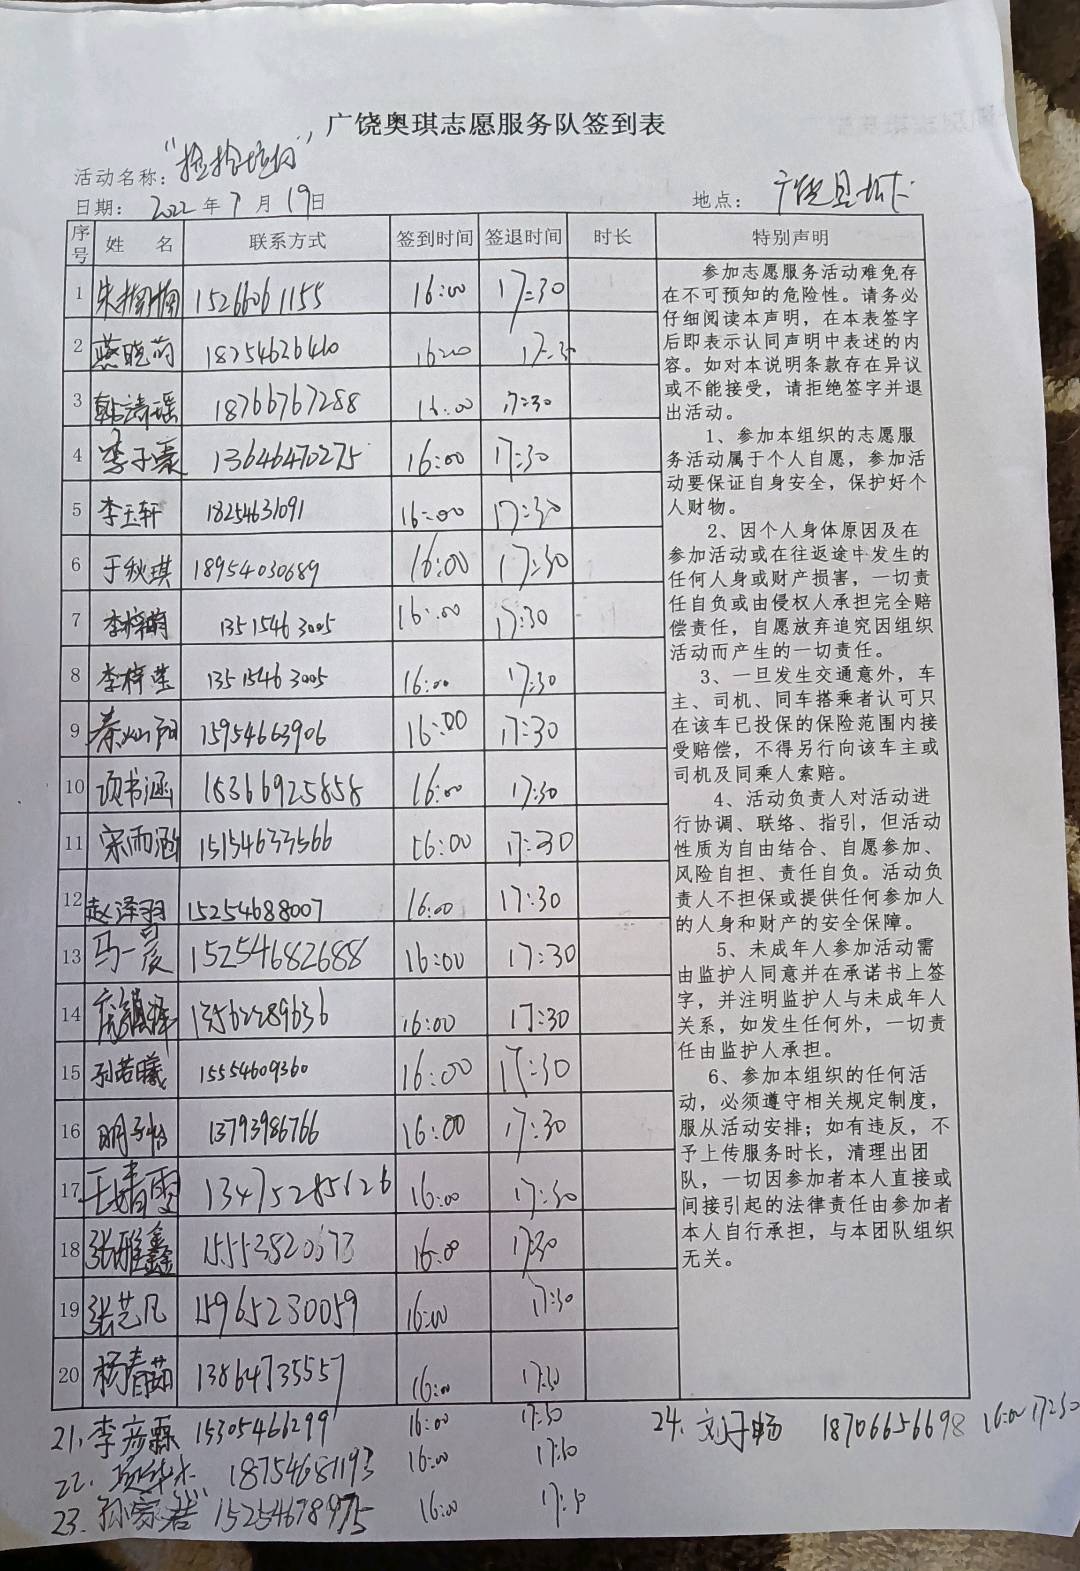 广饶奥琪志愿服务队签到表
活动名称：
日期： 2022 年 7 月 19日 地点： 广饶县
序号 姓 名 联系方式 签到时间 签退时间 时长 特别声明
1 朱楠楠 15266061155 16:00 17:30
2 燕晓 18254626460 16:00 17:30
3 韩涛瑶 18766767288 16:00 17:30
4 李子豪 13646470275 16:00 17:30
5 李玉轩 18254631091 16:00 17:30
6 于秋琪 18954030689 16:00 17:30
7 李梓萌 13515463005 16:00 17:30
8 李梓莹 13515463005 16:00 17:30
9 秦灿阳 15954663906 16:00 17:30
10 项书涵 15366925858 16:00 17:30
11 宋雨涵 15154633566 16:00 17:30
12 赵泽羽 15254688007 16:00 17:30
13 马一晨 15254682688 16:00 17:30
14 13562289636 16:00 17:30
15 孙若曦 15554609360 16:00 17:30
16 明子怡 13793986766 16:00 17:30
17 王婧雯 13475285626 16:00 17:30
18 张雅鑫 15553520673 16:00 17:30
19 张艺凡 15965230059 16:00 17:30
20 杨春茹 13864735557 16:00 17:30
参加志愿服务活动难免存
在不可预知的危险性。请务必
仔细阅读本声明，在本表签字
后即表示认同声明中表述的内
容。如对本说明条款存在异议
或不能接受，请拒绝签字并退
出活动。
1、参加本组织的志愿服
务活动属于个人自愿，参加活
动要保证自身安全，保护好个
人财物。
2、因个人身体原因及在
参加活动或在往返途中发生的
任何人身或财产损害，一切责
任自负或由侵权人承担完全赔
偿责任，自愿放弃追究因组织
活动而产生的一切责任。
3、一旦发生交通意外，车
主、司机、同车搭乘者认可只
在该车已投保的保险范围内接
受赔偿，不得另行向该车主或
司机及同乘人索赔。
4、活动负责人对活动进
行协调、联络、指引，但活动
性质为自由结合、自愿参加、
风险自担、责任自负。活动负
责人不担保或提供任何参加人
的人身和财产的安全保障。
5、未成年人参加活动需
由监护人同意并在承诺书上签
字，并注明监护人与未成年人
关系，如发生任何外，一切责
任由监护人承担。
6、参加本组织的任何活
动，必须遵守相关规定制度，
服从活动安排；如有违反，不
予上传服务时长，清理出团
队，一切因参加者本人直接或
间接引起的法律责任由参加者
本人自行承担，与本团队组织
无关。
21. 李彦霖 15305466299 16:00 17:30
24. 刘子畅 18706656698 16:00 17:30
22. 18754687193 16:00 17:30
23. 孙家 15254678975 16:00 17:30